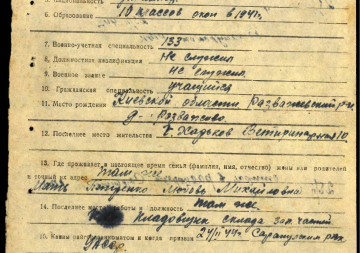 6. Образование 10 классов окон в 1941г.
7. Военно-учетная специальность 133
8. Должностная квалификация Не служил
9. Военное звание не служил
10. Гражданская специальность учащийся
11. Место рождения Киевской области Розважевский р-н
д. Розважево
12. Последнее место жительства г. Харьков Ветеринарная 10
13. Где проживает в настоящее время семья (фамилия, имя, отчество) жены или родителей
и точный их адрес Там же
Мать Любовь Михайловна
14. Последнее место работы и должность там же
Кладовщик склада зап. частей
15. Каким райвоенкоматом и когда призван 24/II 44г. Сарапульским рвк
УАССР